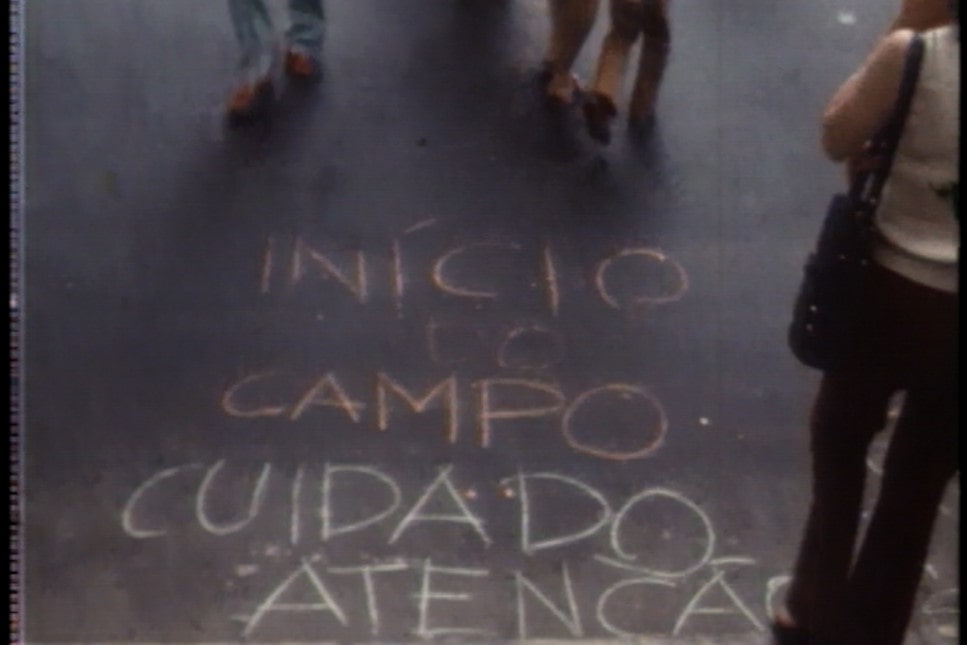 INÍCIO
DO
CAMPO
CUIDADO
ATENCÃO